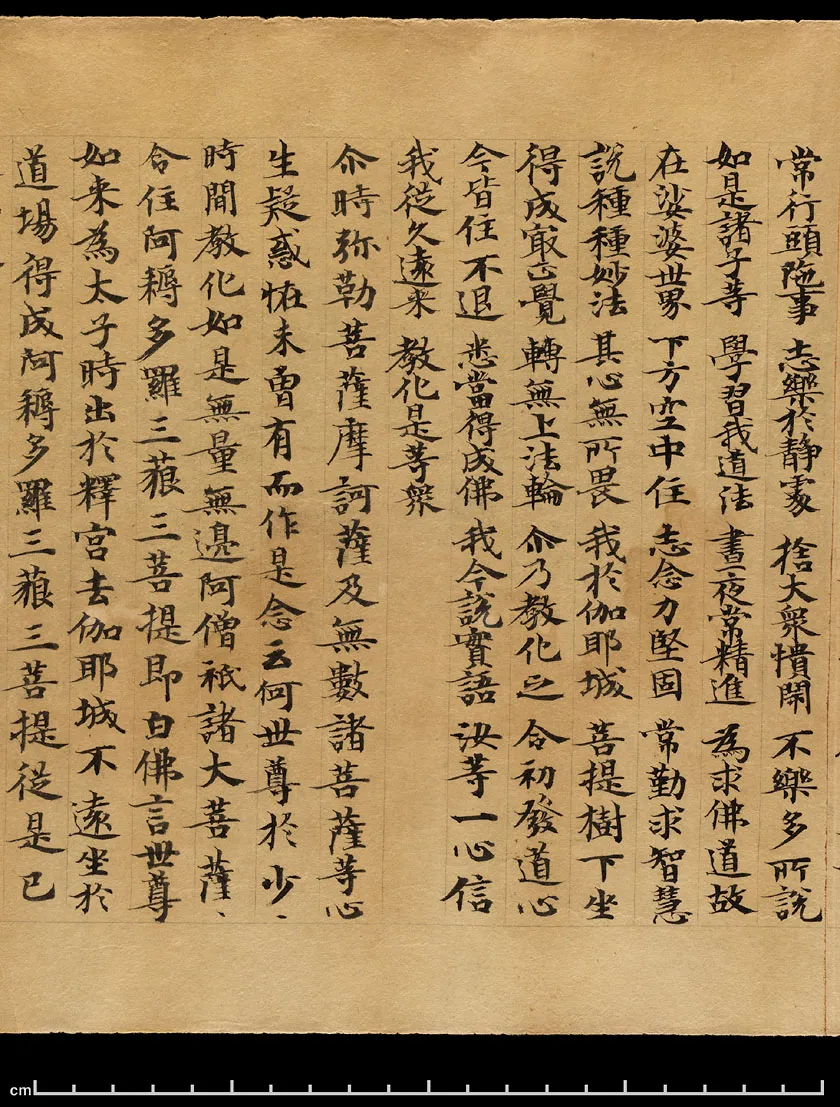 常行頭陁事 志樂於静䖏 捨大衆憒閙 不樂多所說
如是諸子等 學習我道法 晝夜常精進 為求佛道故
在娑婆世界 下方空中住 志念力堅固 常勤求智慧
說種種妙法 其心無所畏 我於伽耶城 菩提樹下坐
得成㝡正覺 轉無上法輪 尒乃教化之 令初發道心
今皆住不退 悉當得成佛 我今說實語 汝等一心信
我從久遠来 教化是等衆
尒時弥勒菩薩摩訶薩及無數諸菩薩等心
生疑惑恠未曾有而作是念云何世尊於少、
時間教化如是無量無邊阿僧祇諸大菩薩、
令住阿耨多羅三藐三菩提即白佛言世尊
如来為太子時出於釋宮去伽耶城不遠坐於
道場得成阿耨多羅三藐三菩提從是已